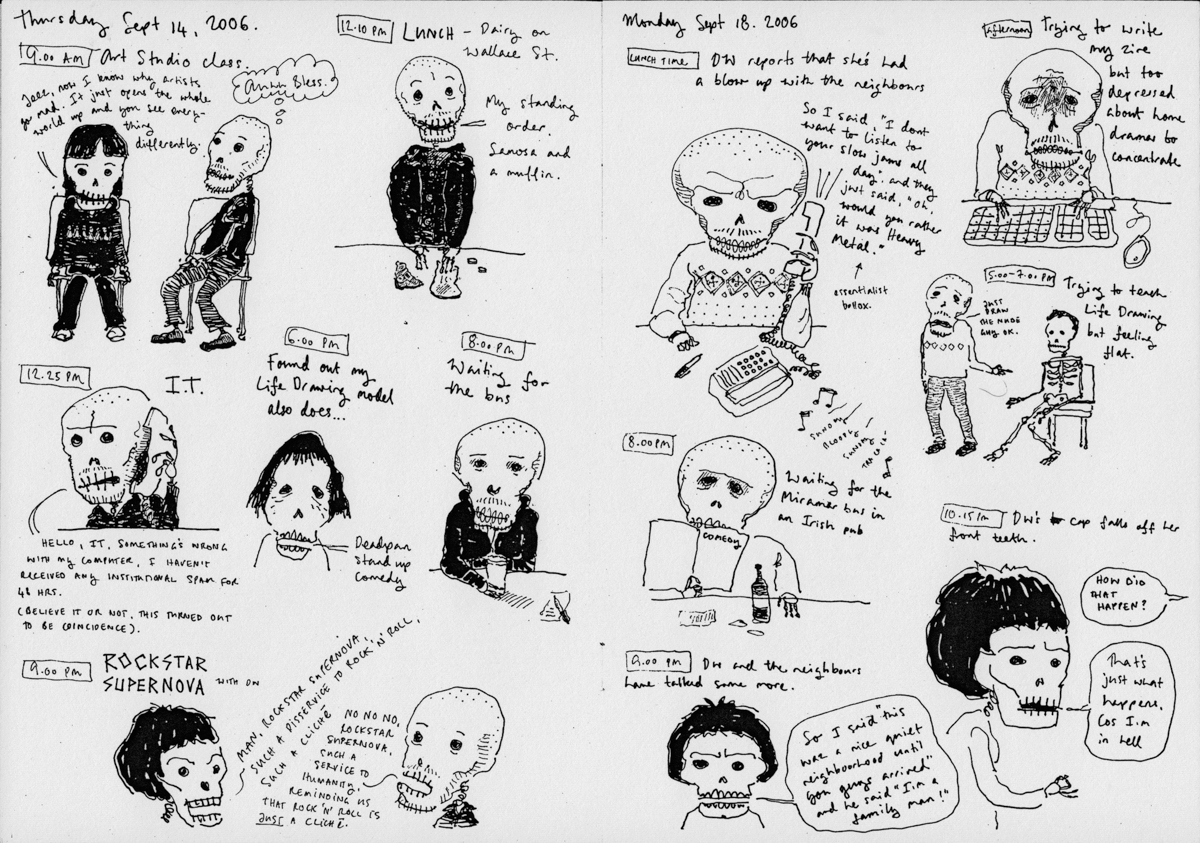 Thursday Sept 14, 2006.
9.00 AM Art Studio class.
Jeez, now I know why artists
go mad. It just opens the whole
world up and you see every-
thing
differently.
Ahhh Bless.
12.10 PM LUNCH - Dairy on
Wallace St.
My standing
order.
Samosa and
a muffin.
12.25 PM I.T.
HELLO, IT, SOMETHING'S WRONG
WITH MY COMPUTER, I HAVEN'T
RECEIVED ANY INSTITUTIONAL SPAM FOR
48 HRS.
(BELIEVE IT OR NOT, THIS TURNED OUT
TO BE COINCIDENCE).
6.00 PM
Found out my
Life Drawing model
also does...
Deadpan
Stand up
Comedy
8.00 PM
Waiting for
the bus
9.00 PM ROCKSTAR
SUPERNOVA WITH DW
MAN, ROCKSTAR SUPERNOVA,
SUCH A DISSERVICE TO ROCK'N'ROLL,
SUCH A CLICHÉ
NO NO NO,
ROCKSTAR
SUPERNOVA,
SUCH A
SERVICE TO
HUMANITY.
REMINDING US
THAT ROCK'N'ROLL IS
JUST A CLICHÉ.
Monday Sept 18. 2006
LUNCH TIME DW reports that she's had
a blow up with the neighbours
So I said "I dont
want to listen to
your slow jams all
day" and they
just said, "Oh,
would you rather
it was Heavy
Metal."
essentialist
bollox.
Afternoon Trying to write
my zine
but too
depressed
about home
dramas to
concentrate
5.00-7.00 PM Trying to teach
Life Drawing
but feeling
flat.
JUST
DRAW
THE NUDE
GUY, OK.
SUNDAY
BLOODY
SUNDAY
8.00 PM
Waiting for the
Miramar bus in
an Irish pub
COMEDY
9.00 PM DW and the neighbours
have talked some more.
So I said "this
was a nice quiet
neighbourhood until
you guys arrived"
and he said "I'm a
family man!"
10.15 PM DW's cap falls off her
front teeth.
HOW DID
THAT
HAPPEN?
That's
just what
happens,
Cos I'm
in hell